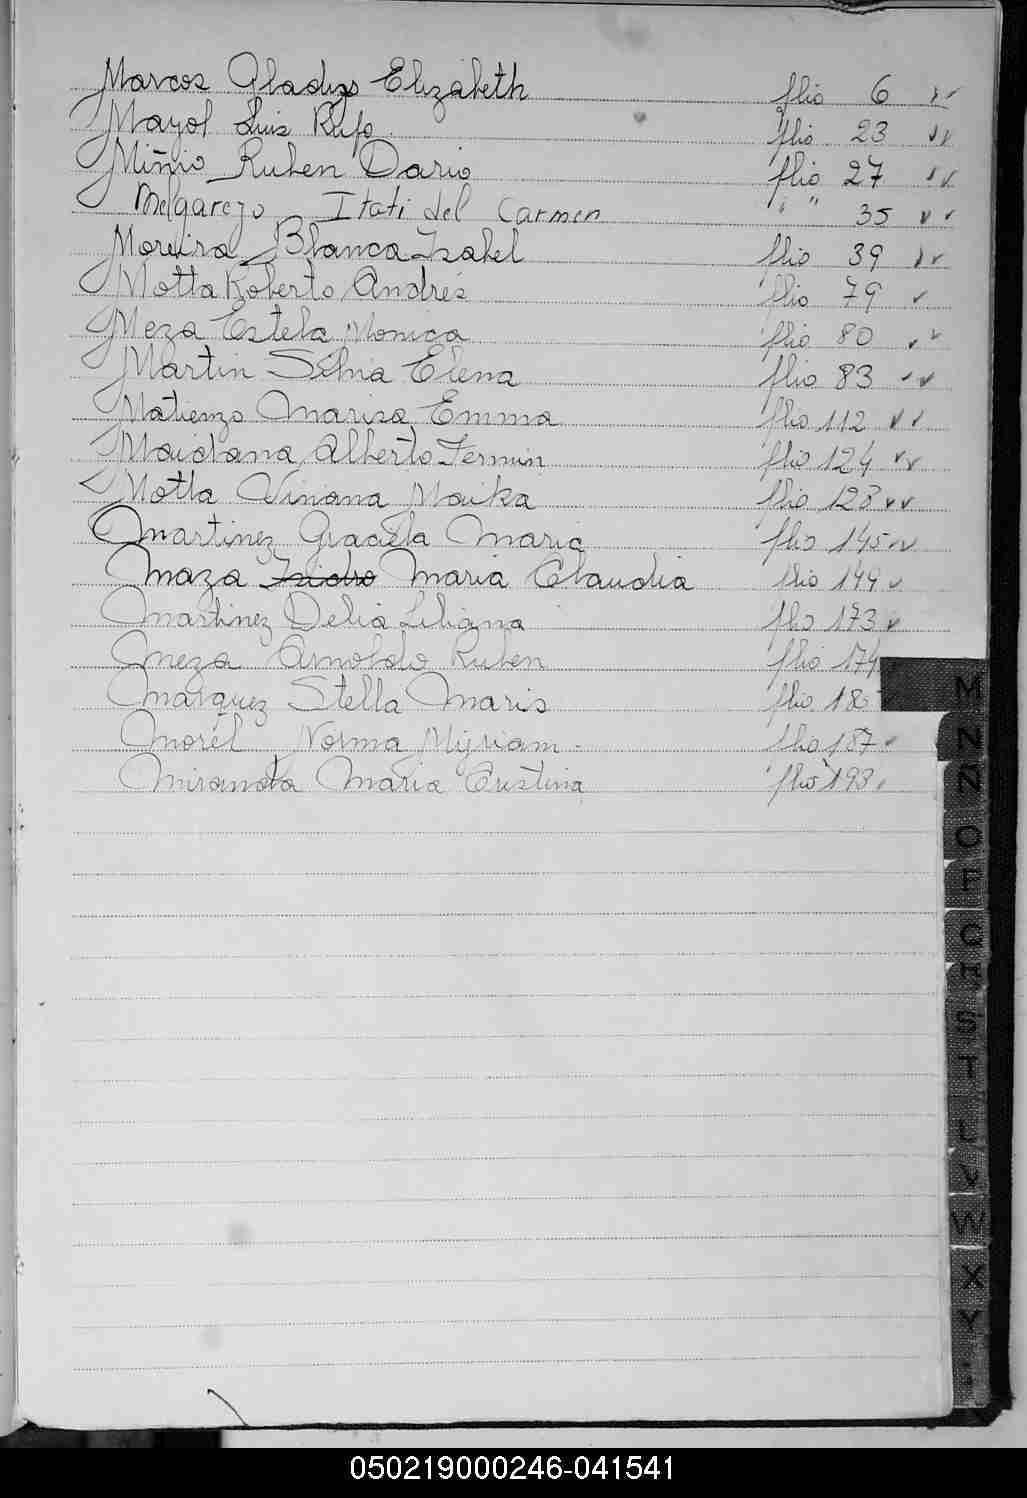 Marcos Gladys Elizabeth flio 6
Mayol Luis Rufo flio 23
Miñio Ruben Dario flio 27
Melgarejo Itati del Carmen " " 35
Moreira Blanca Isabel flio 39
Motta Roberto Andrés flio 79
Meza Estela Monica flio 80
Martin Silvia Elena flio 83
Matienzo Marisa Emma flio 112
Maidana Alberto Fermin flio 124
Motta Viviana Marika flio 128
Martinez Graciela Maria flio 145
Maza Maria Claudia flio 149
Martinez Delia Liliana flio 173
Meza Arnoldo Ruben flio 174
Marquez Stella Maris flio 18
Morél Norma Myriam flio 187
Miranda Maria Cristina flio 193
M
N
N
O
P
Q
R
S
T
V
W
X
Y
050219000246-041541